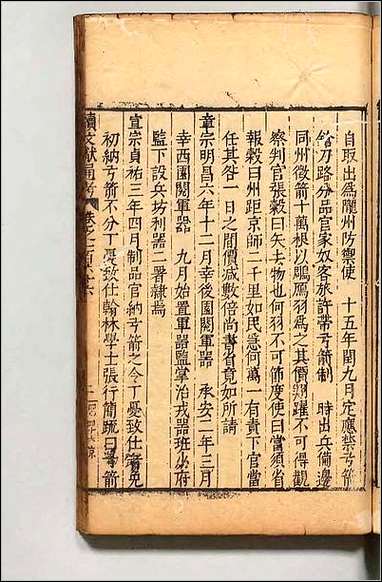 自取出為隴州防禦使　十五年閏九月定應禁弓箭
鎗刀路分品官家奴客旅許帶弓箭制　時出兵備邊
同州徵箭十萬根以鵰鴈羽為之其價翔躍不可得觀
察判官張穀曰矢去物也何羽不可節度使曰當須省
報穀曰州距京師二千里如民急何萬一有責下官當
任其咎一日之間價減數倍尚書省竟如所請
章宗明昌六年十二月幸後園閱軍器　承安二年三月
幸西園閱軍器　九月始置軍器監掌治戎器班少府
監下設兵坊利器二署隸焉
宣宗貞祐三年四月制品官納弓箭之令丁憂致仕者免
初納弓箭不分丁憂致仕翰林學士張行簡疏曰弓箭
續文獻通考　卷之一百六十六